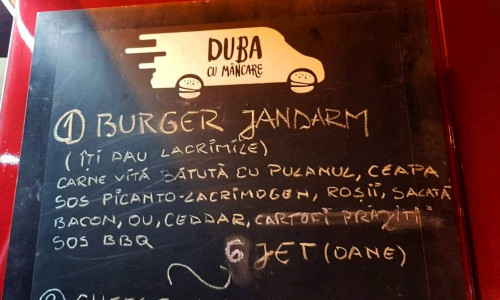 DUBA
CU MÂNCARE
① BURGER JANDARM
(ÎȚI DAU LACRIMILE)
CARNE VITĂ BĂTUTĂ CU PULANUL, CEAPA
SOS PICANTO-LACRIMOGEN, ROȘII, SALATĂ
BACON, OU, CEDDAR, CARTOFI PRĂJIȚI
SOS BBQ
6 JET(OANE)